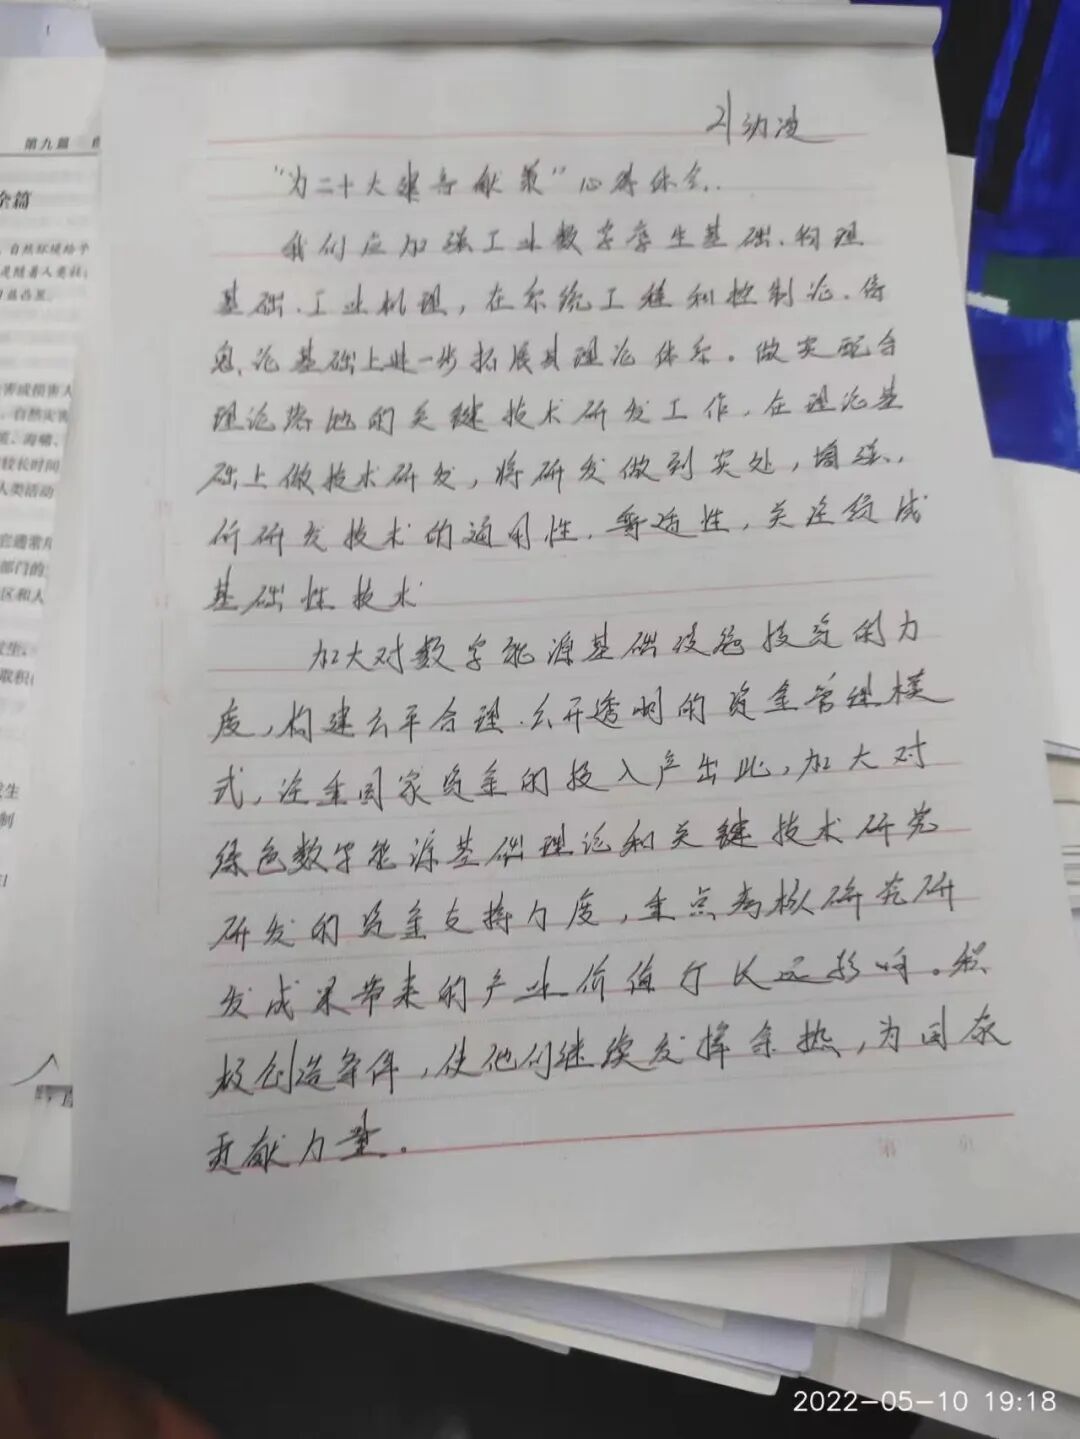 第九篇
全篇
，自然环境给予
害成损害人
，自然灾害
、海啸、
较长时间
人类活动
官通常用
部门的
区和人
发生
制
"为二十大建言献策"心得体会.
我们应加强工业数字孪生基础、物理
基础、工业机理，在系统工程和控制论、信
息论基础上进一步拓展其理论体系。做实配合
理论落地的关键技术研发工作，在理论基
础上做技术研发，将研发做到实处，增强
所研发技术的通用性、普适性，关注组成
基础性技术
加大对数字能源基础设施投资的力
度，构建公平合理、公开透明的资金管理模
式，注重国家资金的投入产出比，加大对
绿色数字能源基础理论和关键技术研究
研发的资金支持力度，重点考核研究研
发成果带来的产业价值 长远影响。积
极创造条件，使他们继续发挥余热，为国家
贡献力量。
第 页
2022-05-10 19:18